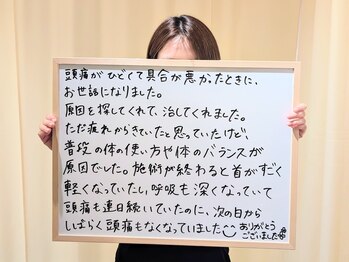 頭痛がひどくて具合が悪かったときに、
お世話になりました。
原因を探してくれて、治してくれました。
ただ疲れからきていたと思っていたけど、
普段の体の使い方や体のバランスが
原因でした。施術が終わると首がすごく
軽くなっていたし、呼吸も深くなっていて
頭痛も連日続いていたのに、次の日から
しばらく頭痛もなくなっていました
ありがとう
ございました